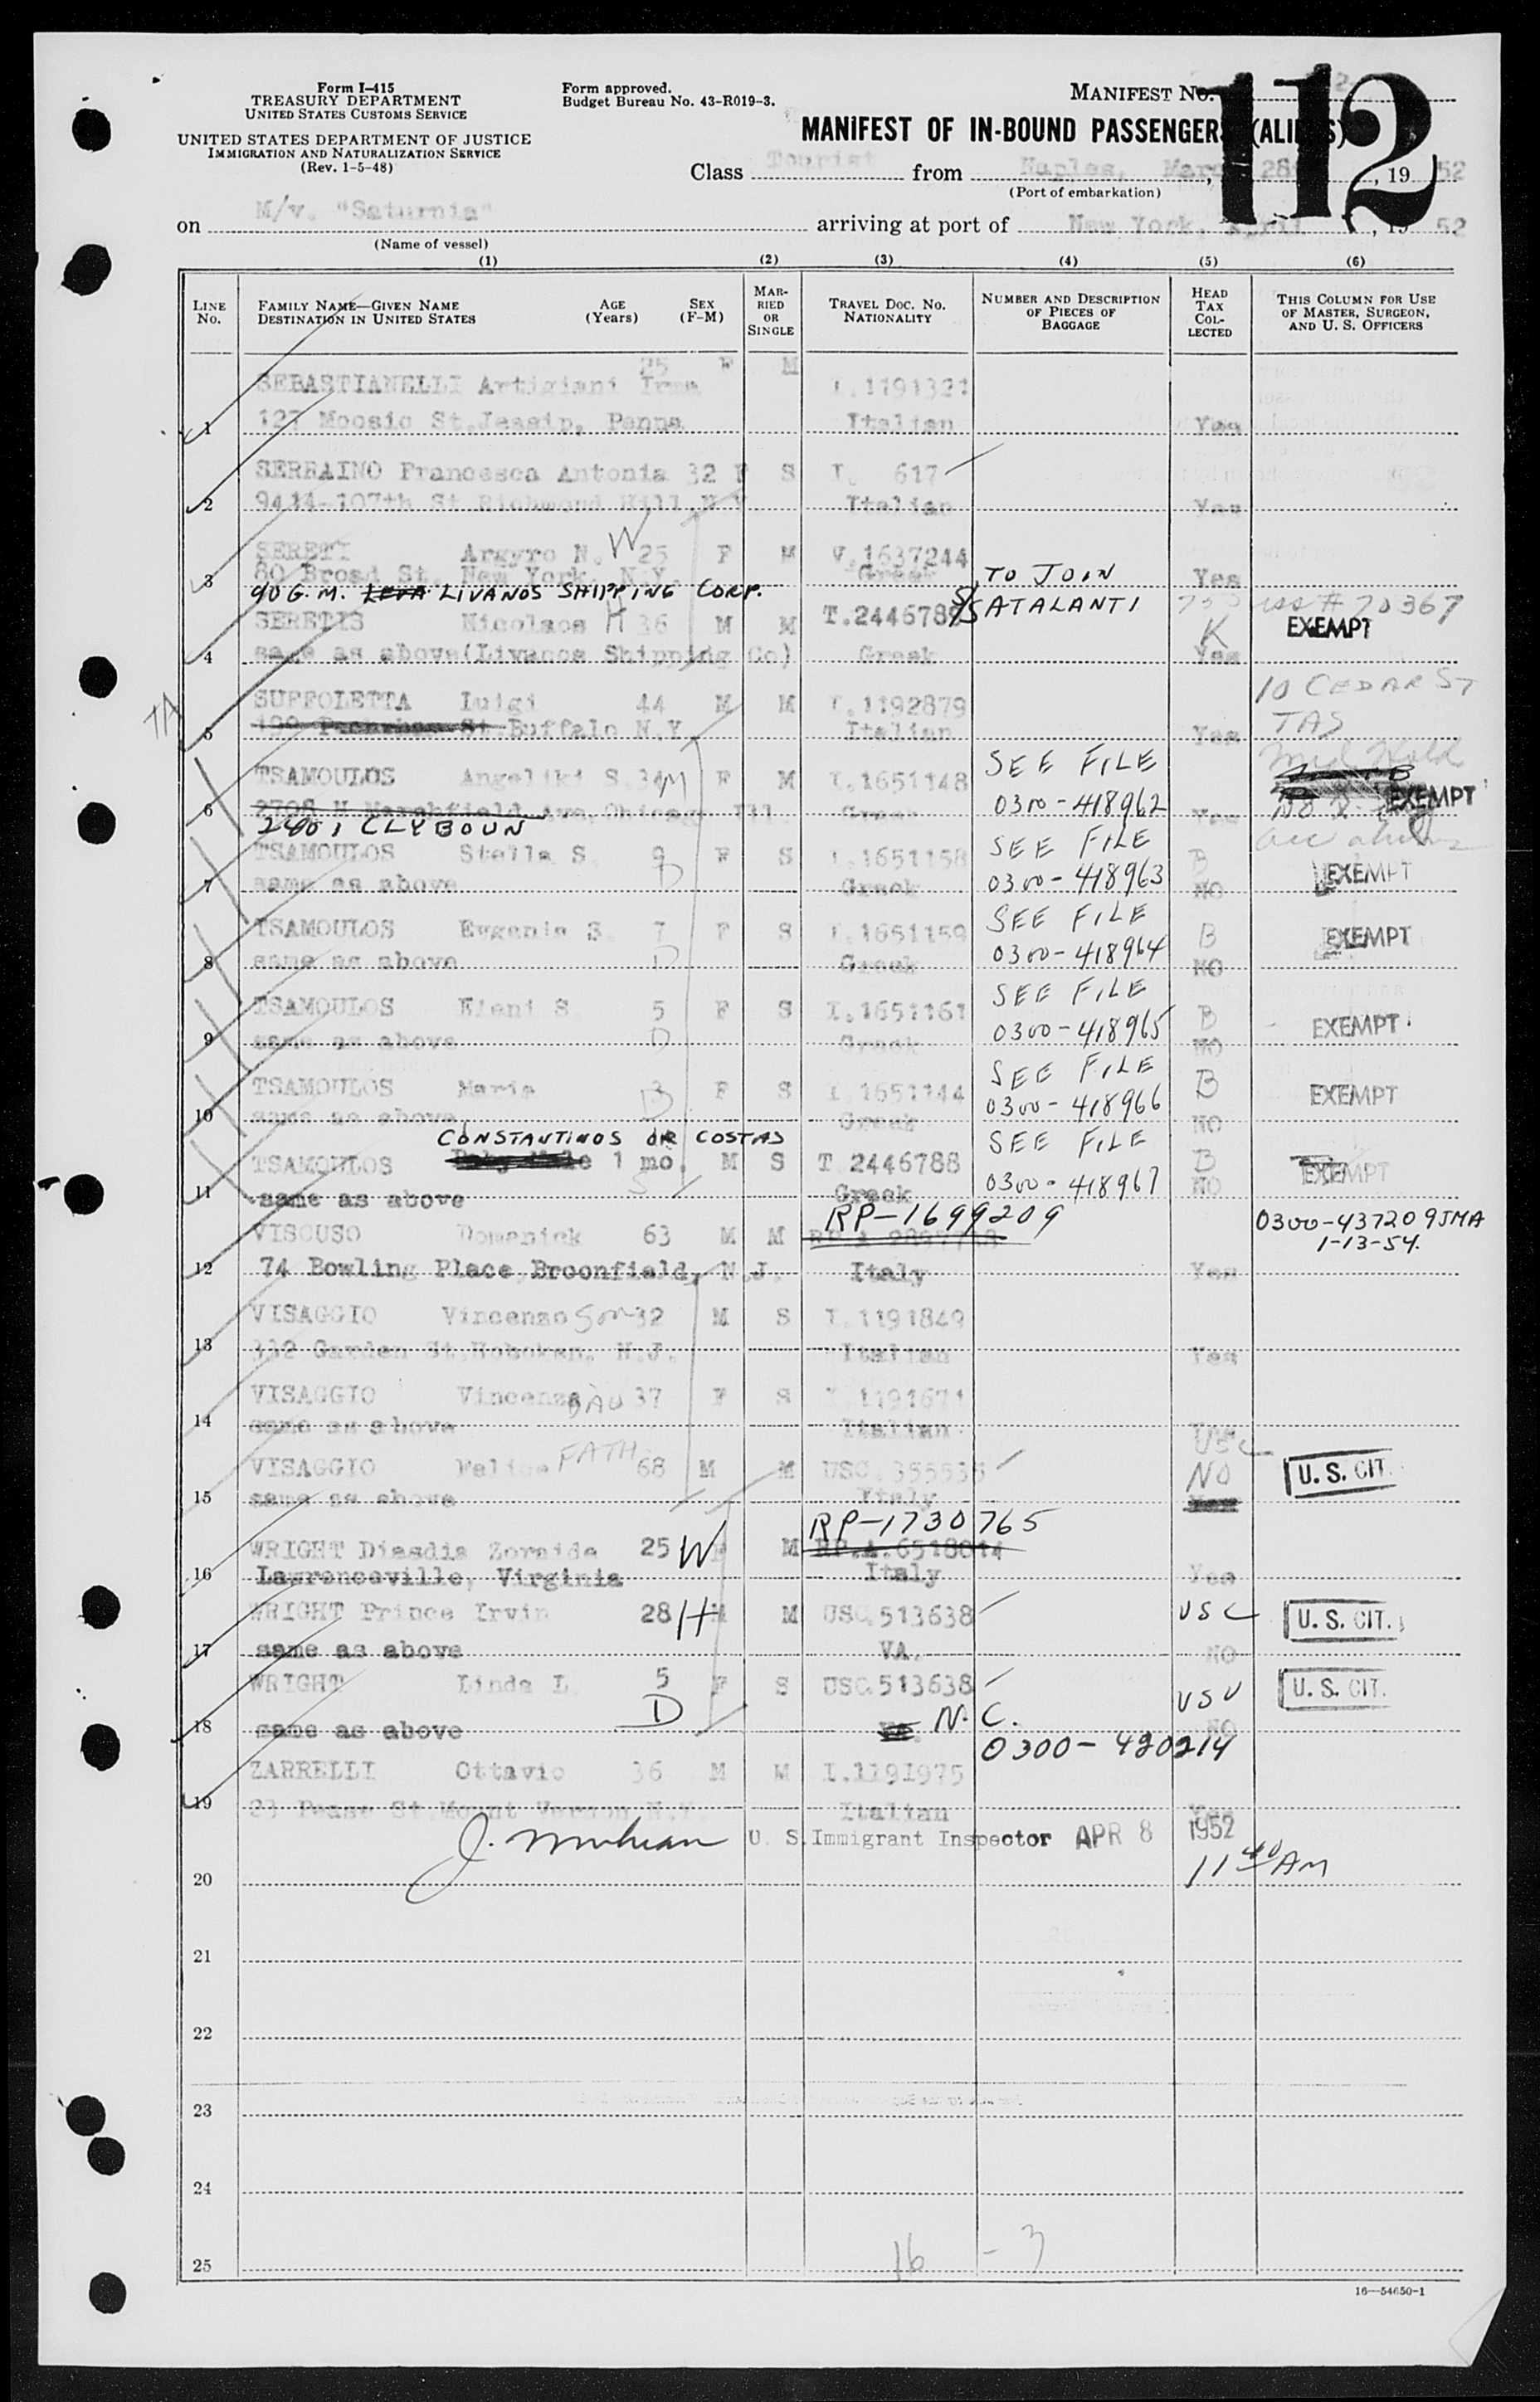 Form I-415
TREASURY DEPARTMENT
UNITED STATES CUSTOMS SERVICE
UNITED STATES DEPARTMENT OF JUSTICE
IMMIGRATION AND NATURALIZATION SERVICE
(Rev. 1-5-48)
Form approved.
Budget Bureau No. 43-R019-3.
MANIFEST NO.
112
MANIFEST OF IN-BOUND PASSENGERS (ALIENS)
Class Tourist from Naples, March 28, 1952
(Port of embarkation)
on M/v. "Saturnia" arriving at port of New York, April, 1952
(Name of vessel)
(1) (2) (3) (4) (5) (6)
LINE No. FAMILY NAME—GIVEN NAME DESTINATION IN UNITED STATES AGE (Years) SEX (F-M) MARRIED OR SINGLE TRAVEL DOC. NO. NATIONALITY NUMBER AND DESCRIPTION OF PIECES OF BAGGAGE HEAD TAX COLLECTED THIS COLUMN FOR USE OF MASTER, SURGEON, AND U. S. OFFICERS
25 F M
SEBASTIANELLI Artigiani Irma I.1191321
1 127 Moosic St.Jessip, Penna Italian Yes
SERRAINO Francesca Antonia 32 F S I. 617
2 9414-107th St Richmond Hill N.Y. Italian Yes
SERETI Argyro N. W 25 F M V.1637244
3 80 Broad St. New York, N.Y. Greek TO JOIN Yes
90 G. M. LIVANOS SHIPPING CORP. S/S ATALANTI # 70367
SERETIS Nicolaos H 36 M M T.2446789 K EXEMPT
4 same as above(Livanos Shipping Co) Greek Yes
10 CEDAR ST
SUFFOLETTA Luigi 44 M M I.1192879 TAS
5 St.Buffalo N.Y. Italian Yes
SEE FILE Med Hold
TSAMOULOS Angeliki S. 34 M F M I.1651148
6 2708 N Marshfield Ave,Chicago Ill. Greek 0300-418962 Yes EXEMPT
2401 CLYBOUN
SEE FILE
TSAMOULOS Stella S. 9 F S I.1651158 B EXEMPT
7 same as above D Greek 0300-418963 NO
SEE FILE
TSAMOULOS Evgenia S. 7 F S I.1651159 B EXEMPT
8 same as above D Greek 0300-418964 NO
SEE FILE
TSAMOULOS Eleni S. 5 F S I.1651161 B EXEMPT
9 same as above D Greek 0300-418965 NO
SEE FILE
TSAMOULOS Maria 3 F S I.1651144 B EXEMPT
10 same as above D Greek 0300-418966 NO
CONSTANTINOS OR COSTAS SEE FILE
TSAMOULOS 1 mo. M S T 2446788 B EXEMPT
11 same as above S Greek 0300-418967 NO
RP-1699209 0300-437209 JMA
VISCUSO Domenick 63 M M 1-13-54.
12 74 Bowling Place,Broonfield, N.J. Italy Yes
VISAGGIO Vincenzo Son 32 M S I.1191849
13 312 Garden St.Hoboken. N.J. Italian Yes
VISAGGIO Vincenza DAU 37 F S I.1191671
14 same as above Italian Yes
USC
VISAGGIO Felice FATH 68 M M USC.355535 NO U. S. CIT.
15 same as above Italy
RP-1730765
WRIGHT Diasdia Zoraide 25 W F M RP.A.6518014
16 Lawrenceville, Virginia Italy Yes
WRIGHT Prince Irvin 28 H M M USC.513638 USC U. S. CIT.
17 same as above VA. NO
WRIGHT Linda L. 5 F S USC.513638 USC U. S. CIT.
18 same as above D N. C. NO
0300-420214
ZARRELLI Ottavio 36 M M I.1191975
19 23 Pease St.Mount Vernon N.Y. Italian Yes
U. S. Immigrant Inspector APR 8 1952
11 40 AM
20
21
22
23
24
25 16 - 3
16—54650-1